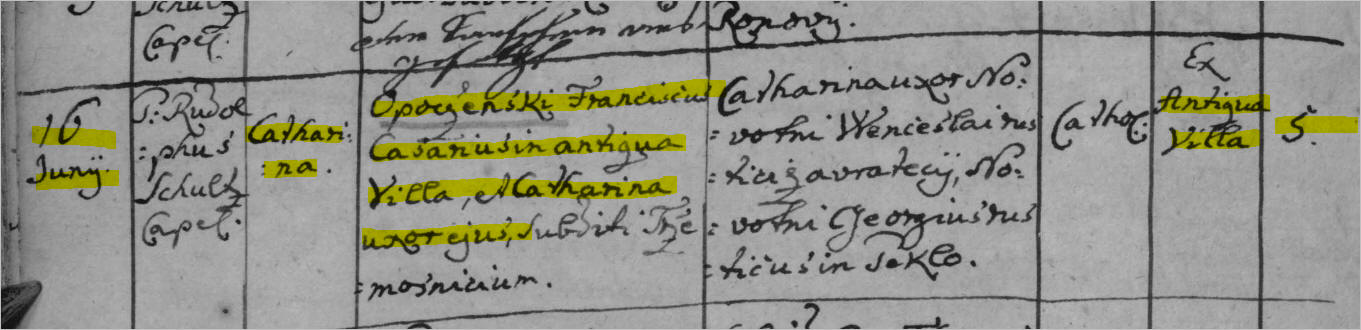 Schultz
Capel:
Ronovÿ.
16
Junij.
P: Rudol
:phus
Schultz
Capel:
Cathari:
:na.
Opoczenski Franciscus
Casarius in antiqua
Villa, et Catharina
uxor ejus, Subditi Trze
:mosnicium.
Catharina uxor No:
:votni Wenceslai rus
:tici Zavratecij, No:
:votni Georgius rus
:ticus in Peklo.
Cathol:
Ex
Antiqua
Villa
5.